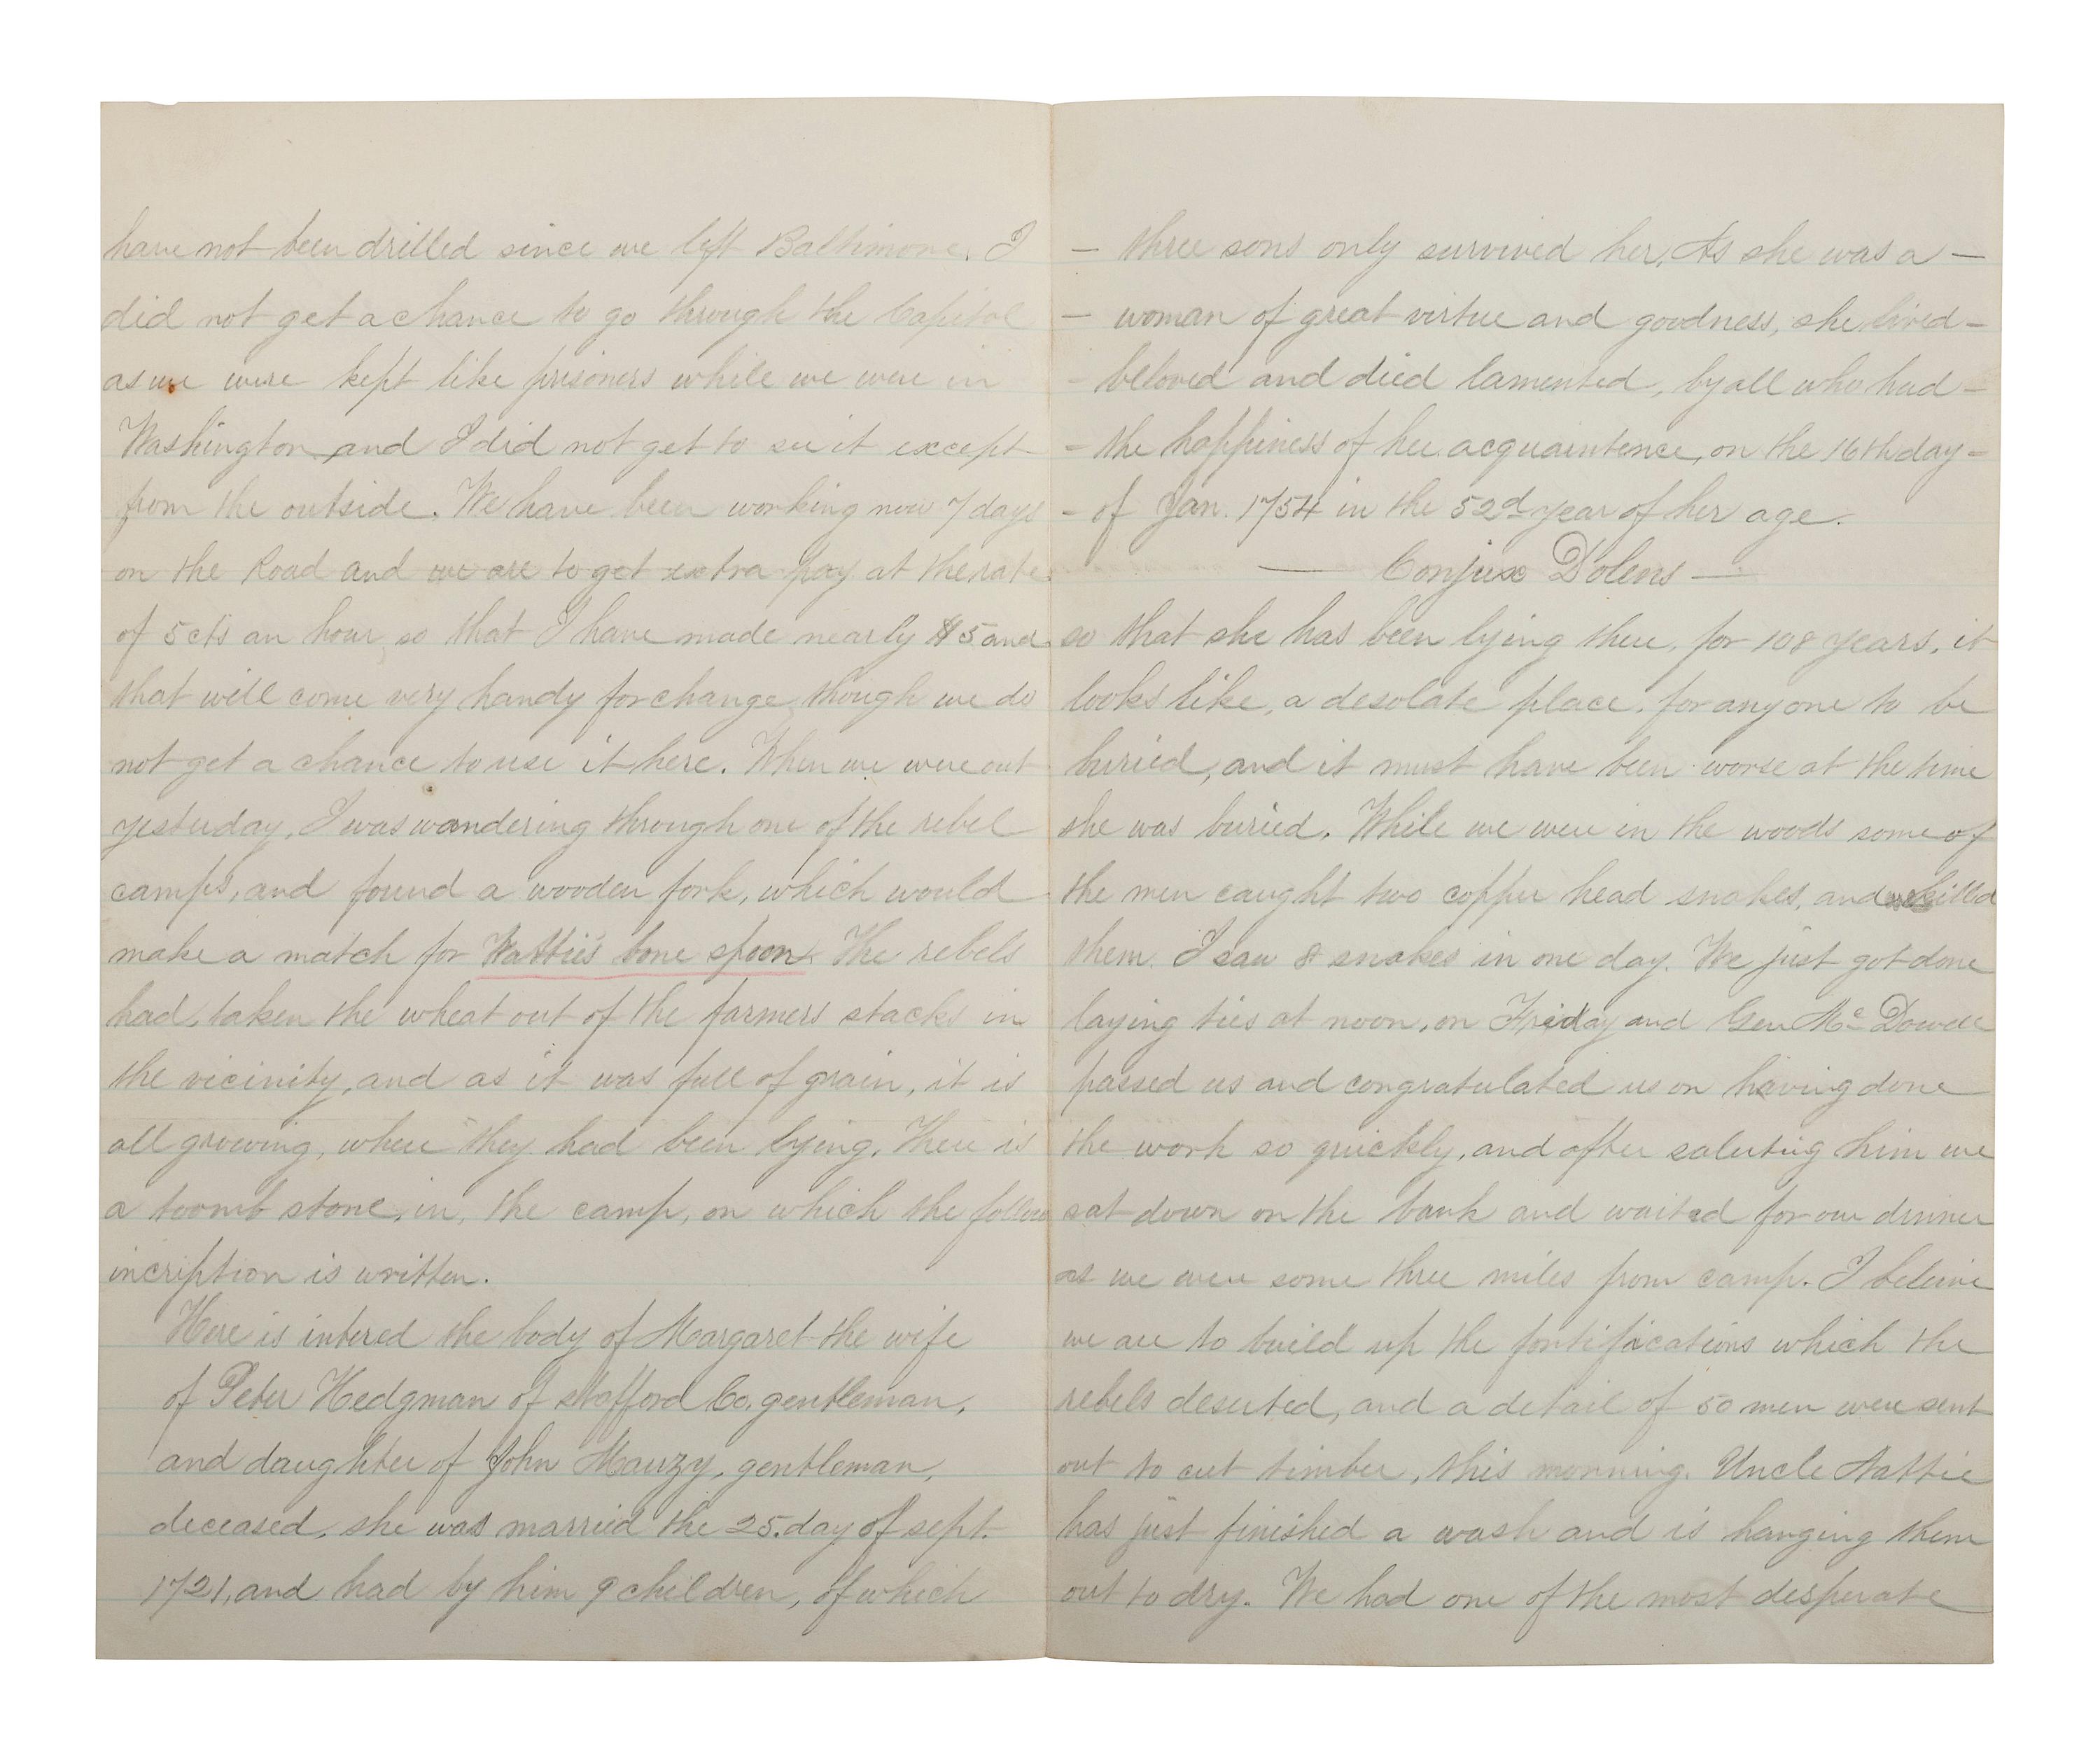 have not been drilled since we left Baltimore. I
did not get a chance to go through the Capitol
as we were kept like prisoners while we were in
Washington and I did not get to see it except
from the outside. We have been working now 7 days
on the Road and we are to get extra pay at the rate
of 5 cts an hour, so that I have made nearly $5 and
that will come very handy for change, though we do
not get a chance to use it here. When we were out
yesterday, I was wandering through one of the rebel
camps, and found a wooden fork, which would
make a match for Hattie's bone spoon. The rebels
had, taken the wheat out of the farmers stacks in
the vicinity, and as it was full of grain, it is
all growing, where they had been lying. There is
a toomb stone, in, the camp, on which the follow
incription is written.
Here is intered the body of Margaret the wife
of Peter Hedgman of Stafford Co. gentleman,
and daughter of John Mauzy, gentleman,
deceased, she was married the 25. day of sept.
1721, and had by him 9 children, of which
- three sons only survived her. As she was a -
- woman of great virtue and goodness, she lived -
- beloved and died lamented, by all who had -
- the happiness of her acquaintence, on the 16th day -
- of Jan. 1754 in the 52d year of her age.
— Conjux Dolens —
so that she has been lying there, for 108 years, it
looks like, a desolate place, for anyone to be
buried, and it must have been worse at the time
she was buried. While we were in the woods some of
the men caught two copper head snakes, and killed
them. I saw 8 snakes in one day. We just got done
laying ties at noon, on Friday and Gen Mc Dowell
passed us and congratulated us on having done
the work so quickly, and after saluting him we
sat down on the bank and waited for our dinner
as we were some three miles from camp. I believe
we are to build up the fortifications which the
rebels deserted, and a detail of 50 men were sent
out to cut timber, this morning. Uncle Hattie
has just finished a wash and is hanging them
out to dry. We had one of the most desperate